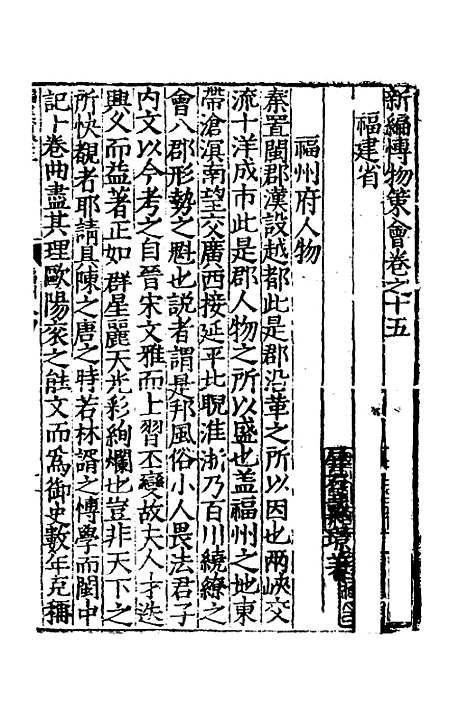 新編博物策會卷之十五
福建省
福州府人物
秦置閩郡漢設越都此是郡沿革之所以因也兩峽交
流十洋成市此是郡人物之所以盛也盖福州之地東
帶滄溟南望交廣西接延平北睨淮浙乃百川繞繚之
會八郡形勢之魁也説者謂是邦風俗小人畏法君子
内文以今考之自晉宋文雅而上習丕變故夫人才迭
興久而益著正如群星麗天光彩絢爛也豈非天下之
所快覩者耶請具陳之唐之時若林諝之博學而閩中
記十卷曲盡其理歐陽衮之能文而爲御史數年克稱